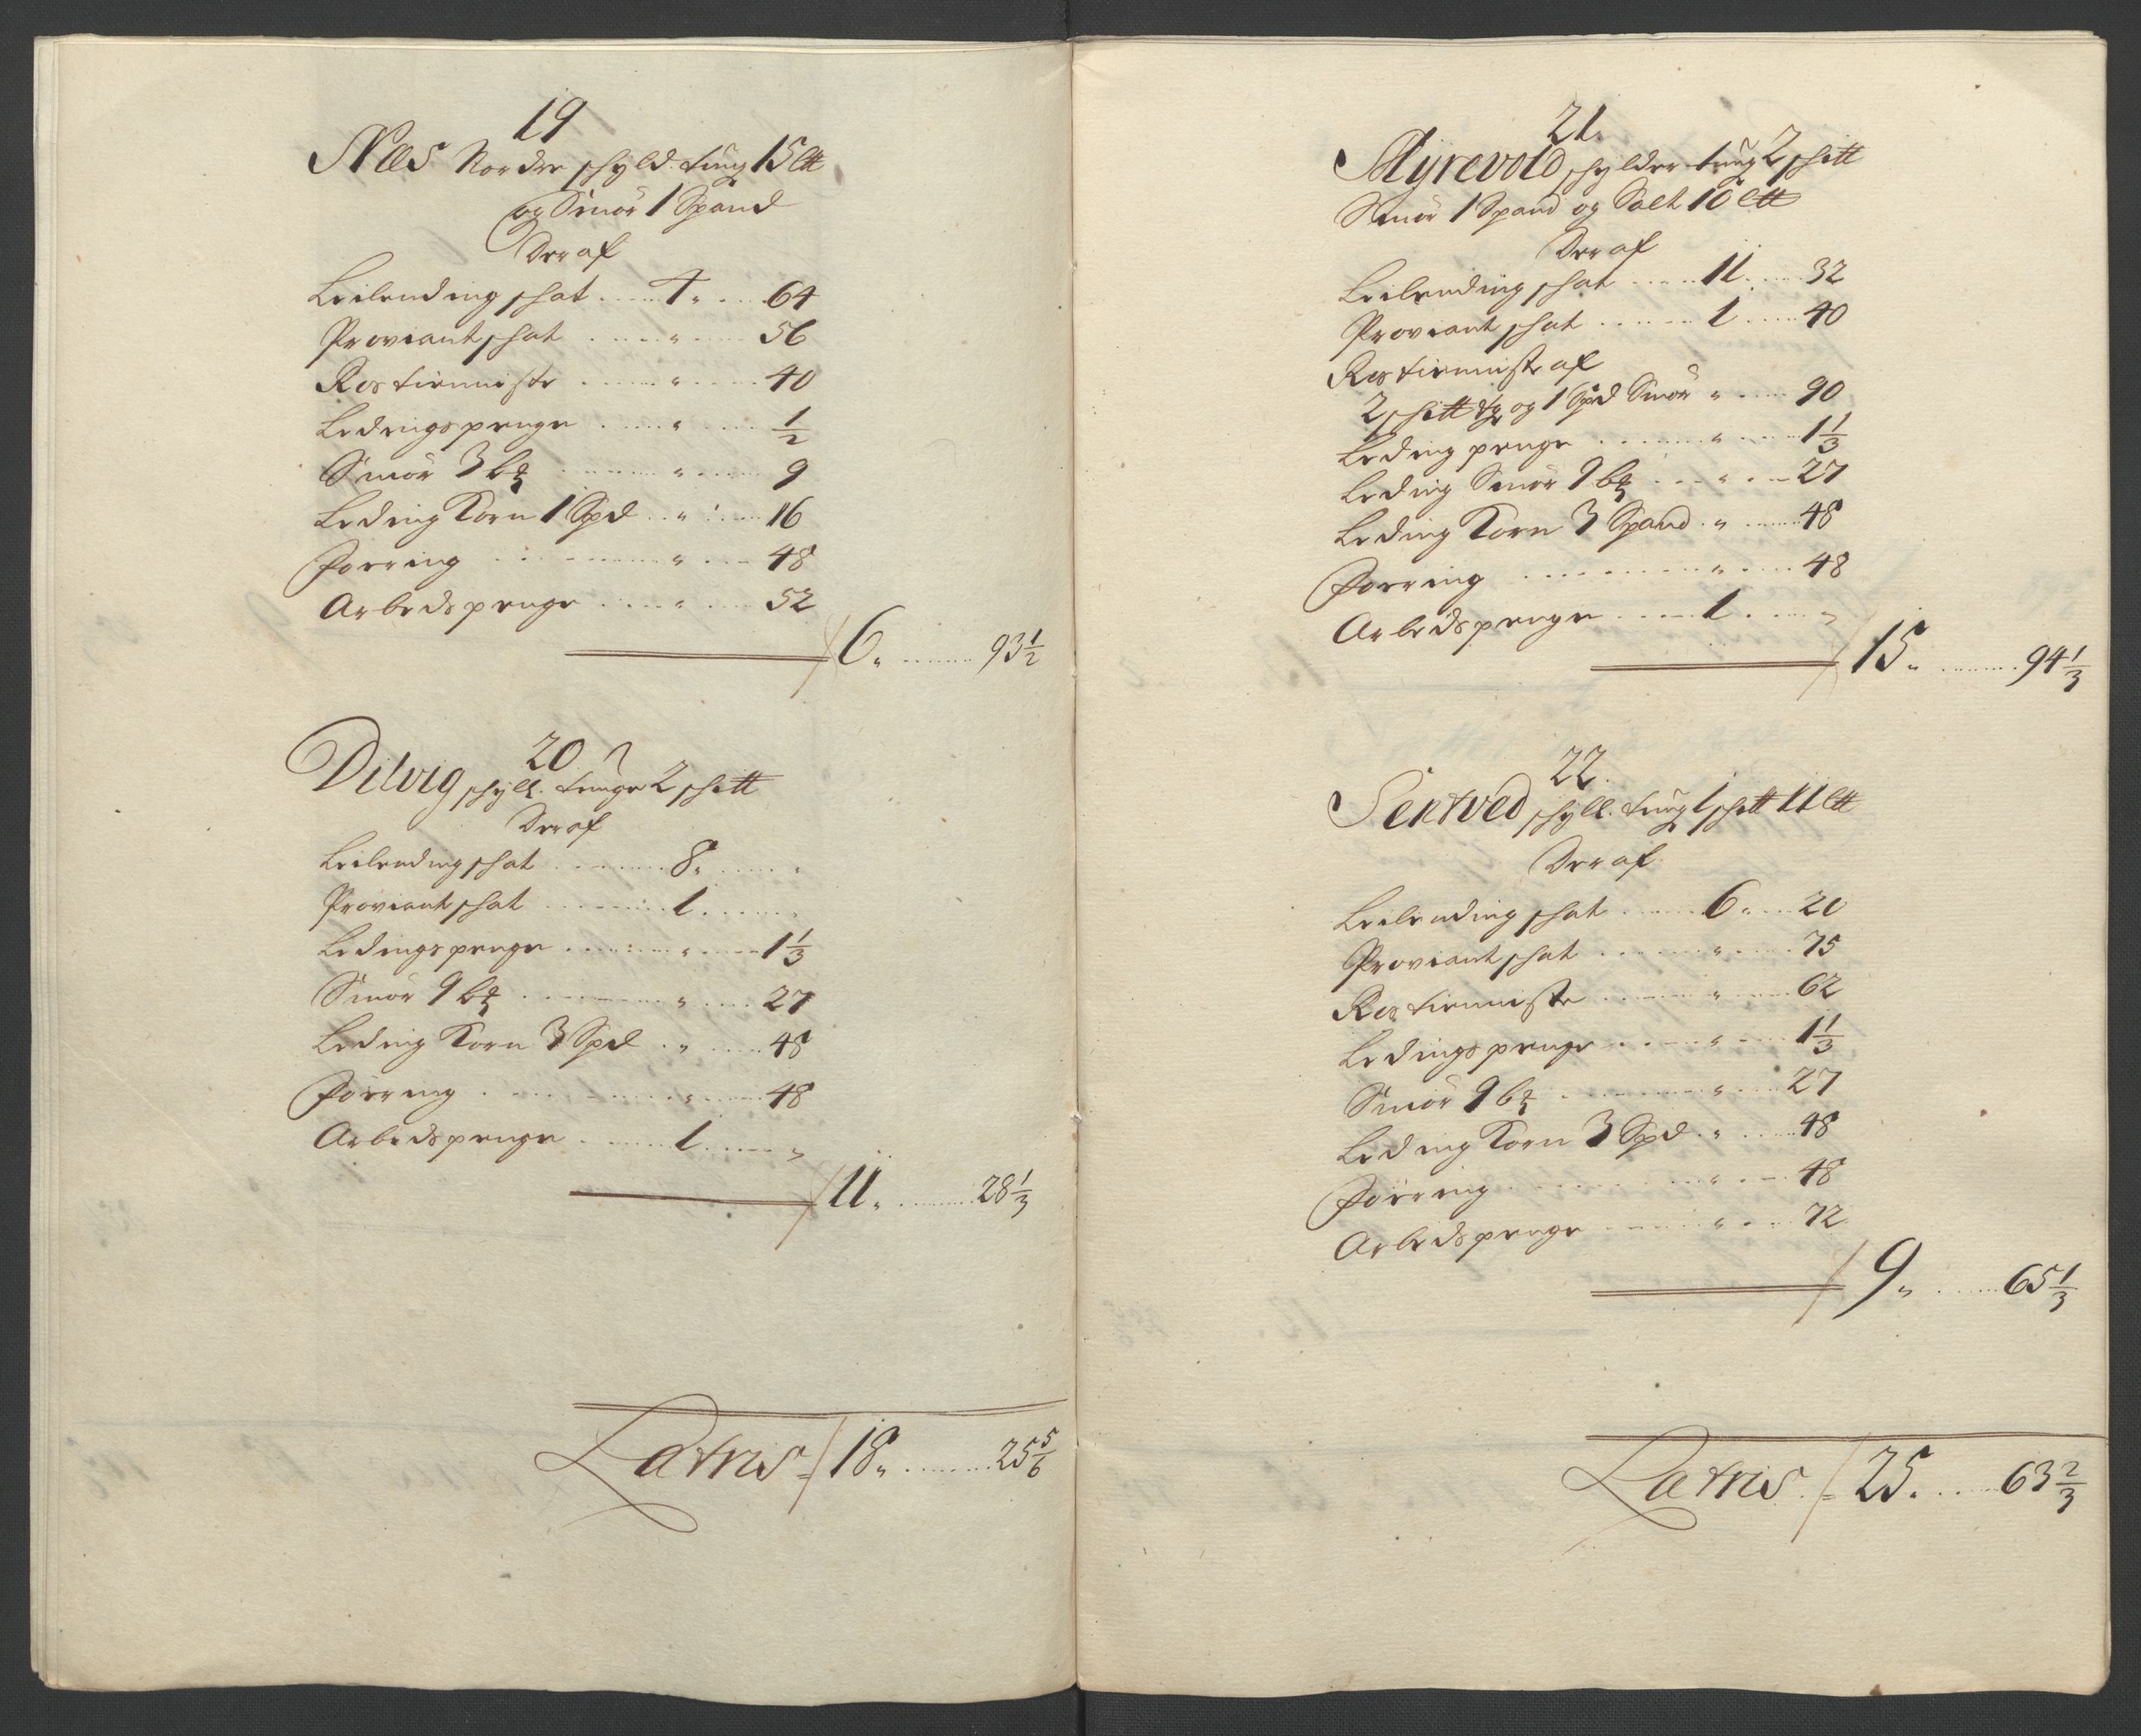 19
Næs Nordre skyld. tung 15 ltt
og Smör 1 Spand
Der af
Leilending skat . . . . 4 " . . . 64
Proviant skat . . . . " . . . 56
Rostienniste . . . . " . . . 40
Ledingspenge . . . . " . . . 1/2
Smör 3 b℔ . . . . " . . . 9
Leding Korn 1 Spd . . " . . . 16
Foering . . . . " . . . 48
Arbedspenge . . . . " . . . 52
6 " . . . . 93 1/2
20
Dilvig skyll. tunge 2 skitt
Der af
Leilending skat . . . . 8 " . . . "
Proviant skat . . . . 1 . . . "
Ledingspenge . . . . " . . . 1 1/3
Smör 9 b℔ . . . . " . . . 27
Leding Korn 3 Spd . " . . . 48
Foering . . . . " . . . 48
Arbedspenge . . . . 1 . . . "
11 " . . . . 28 1/3
Latris = 18 " . . . . 25 5/6
21.
Myrevold skylder tung 2 skitt
Smör 1 Spand og Salt 10 ltt
Der af
Leilending skat . . . . 11 . . . 32
Proviant skat . . . . 1 . . . 40
Rostienniste af
2 skitt tg og 1 Spd Smör " . . . 90
Leding penge . . . . " . . . 1 1/3
Leding Smör 9 b℔ . . . " . . 27
Leding Korn 3 Spand . " . . . 48
Foering . . . . " . . . 48
Arbedspenge . . . . 1 . . . "
15 " . . . . 94 1/3
22.
Sentved skyll. tung 1 skitt 11 ltt
Der af
Leilending skat . . . . 6 " . . . 20
Proviant skat . . . . " . . . 75
Rostienniste . . . . " . . . 62
Ledingspenge . . . . " . . . 1 1/3
Smör 9 b℔ . . . . " . . . 27
Leding Korn 3 Spd . " . . . 48
Foering . . . . " . . . 48
Arbedspenge . . . . " . . . 72
9 " . . . . 65 1/3
Latris . = 25 . . . . 63 2/3